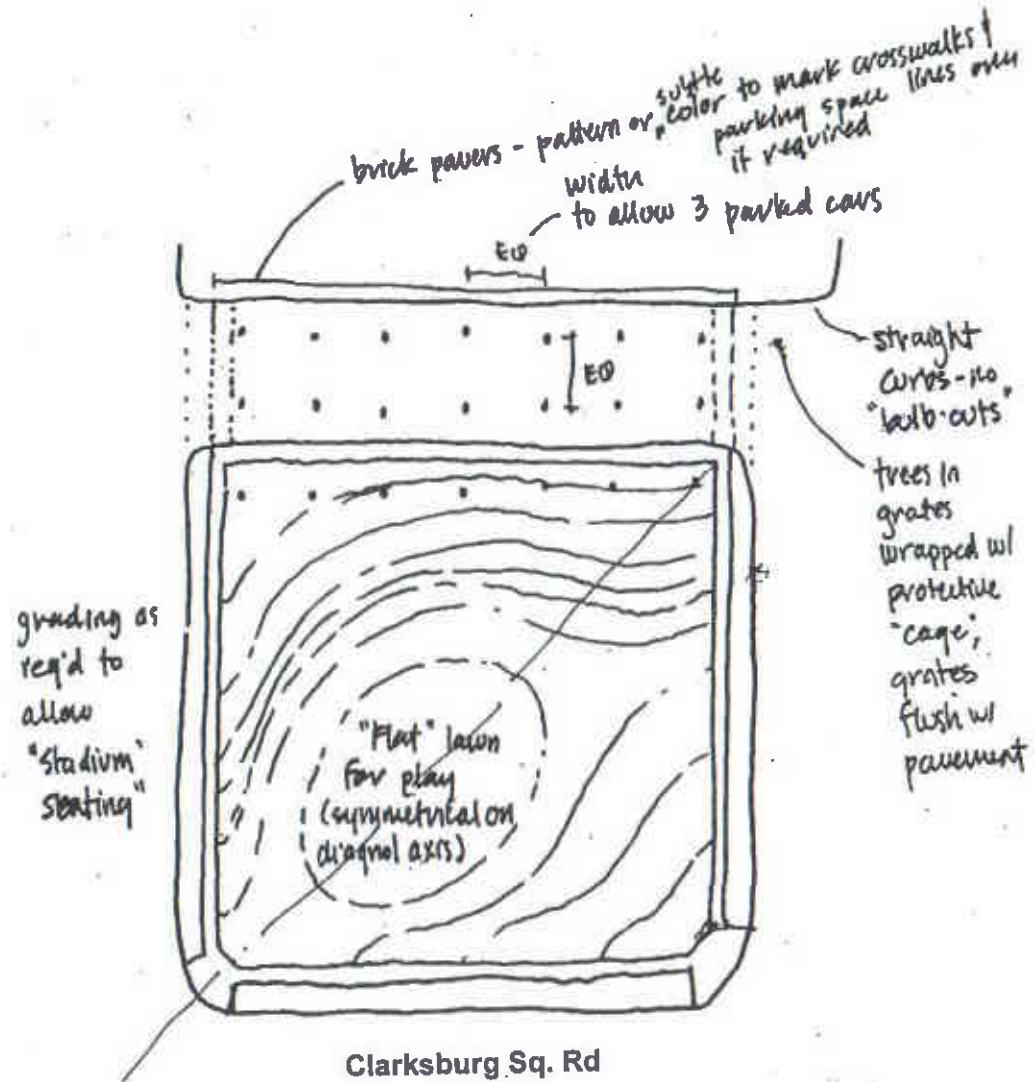 brick pavers - pattern or subtle color to mark crosswalks &
parking space lines over
if required
width
to allow 3 parked cars
EQ
EQ
straight
curbs - no
"bulb-outs"
trees in
grates
wrapped w/
protective
"cage";
grates
flush w/
pavement
grading as
req'd to
allow
"stadium
seating"
"Flat" lawn
for play
(symmetrical on
diagnol axis)
Clarksburg Sq. Rd